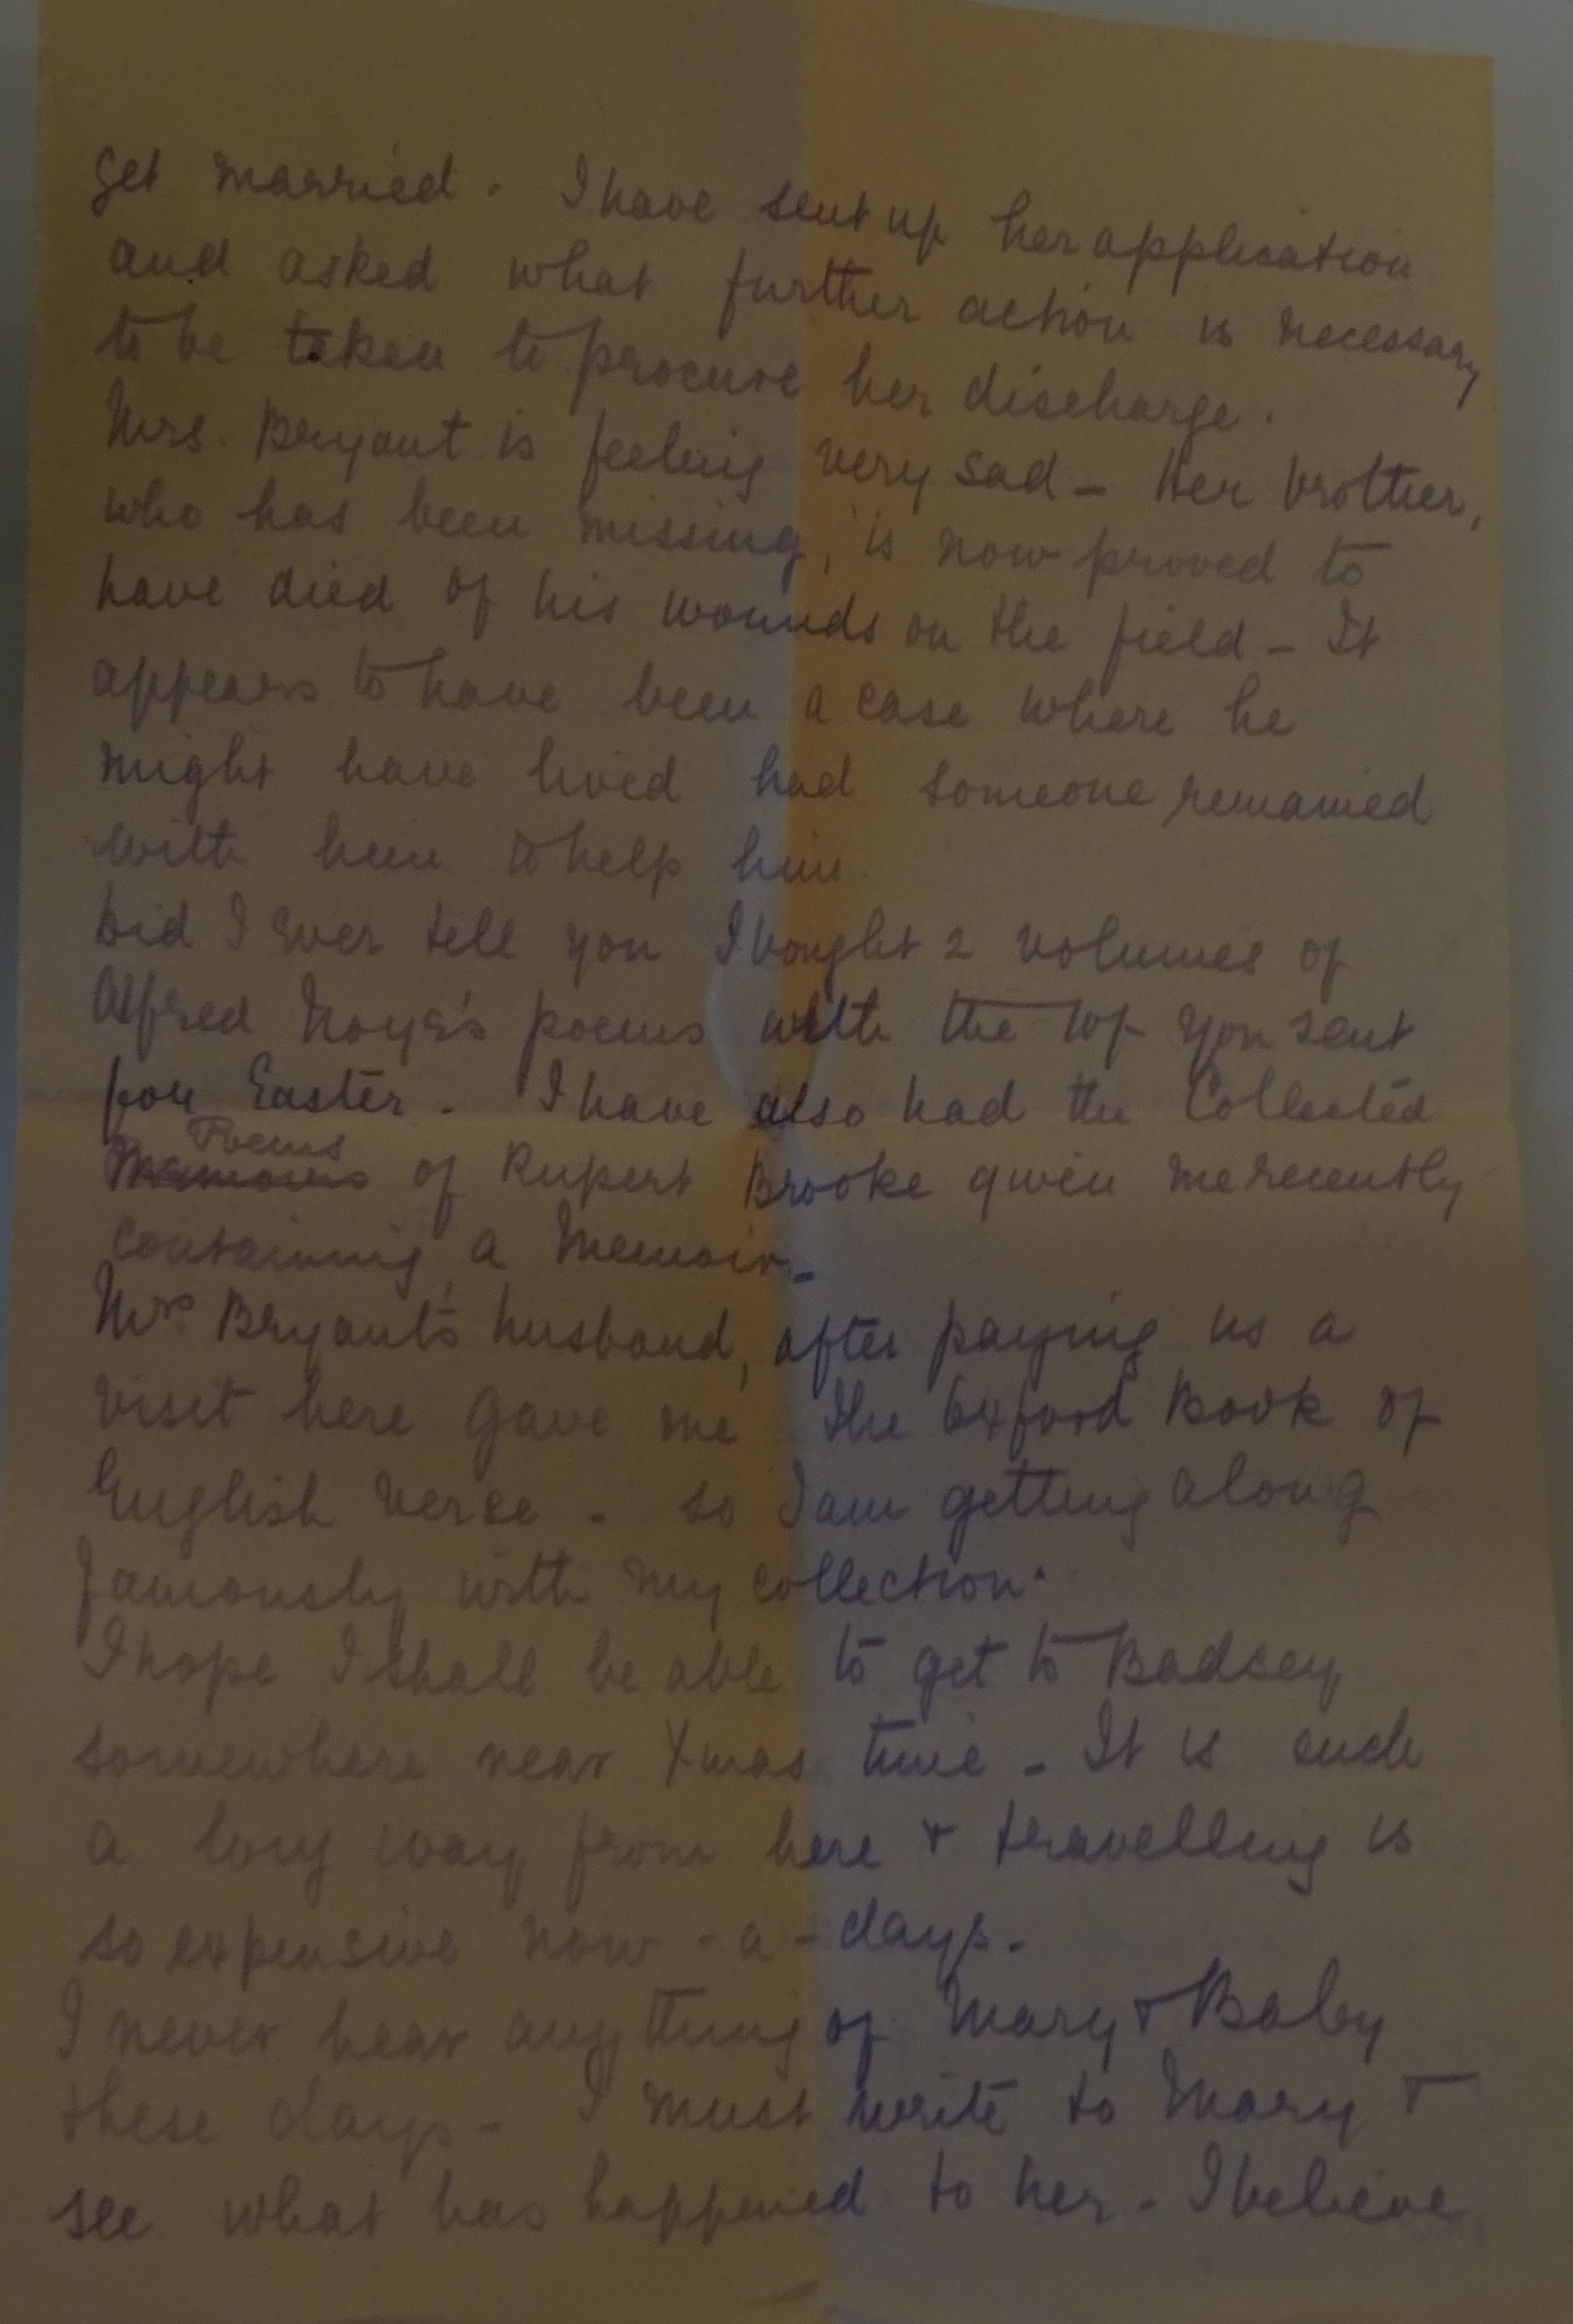 get married. I have sent up her application
and asked what further action is necessary
to be taken to procure her discharge.
Mrs. Bryant is feeling very sad – Her brother,
who has been missing, is now proved to
have died of his wounds on the field – It
appears to have been a case where he
might have lived had someone remained
with him to help him.
Did I ever tell you I bought 2 volumes of
Alfred Noye's poems with the 10/- you sent
for Easter. I have also had the Collected
Poems
Memoirs of Rupert Brooke given me recently
containing a Memoir –
Mrs. Bryant's husband, after paying us a
visit here gave me the Oxford Book of
English Verse – so I am getting along
famously with my collection.
I hope I shall be able to get to Badsey
somewhere near Xmas time – It is such
a long way from here & travelling is
so expensive now-a-days.
I never hear anything of Mary & Baby
these days – I must write to Mary &
see what has happened to her – I believe